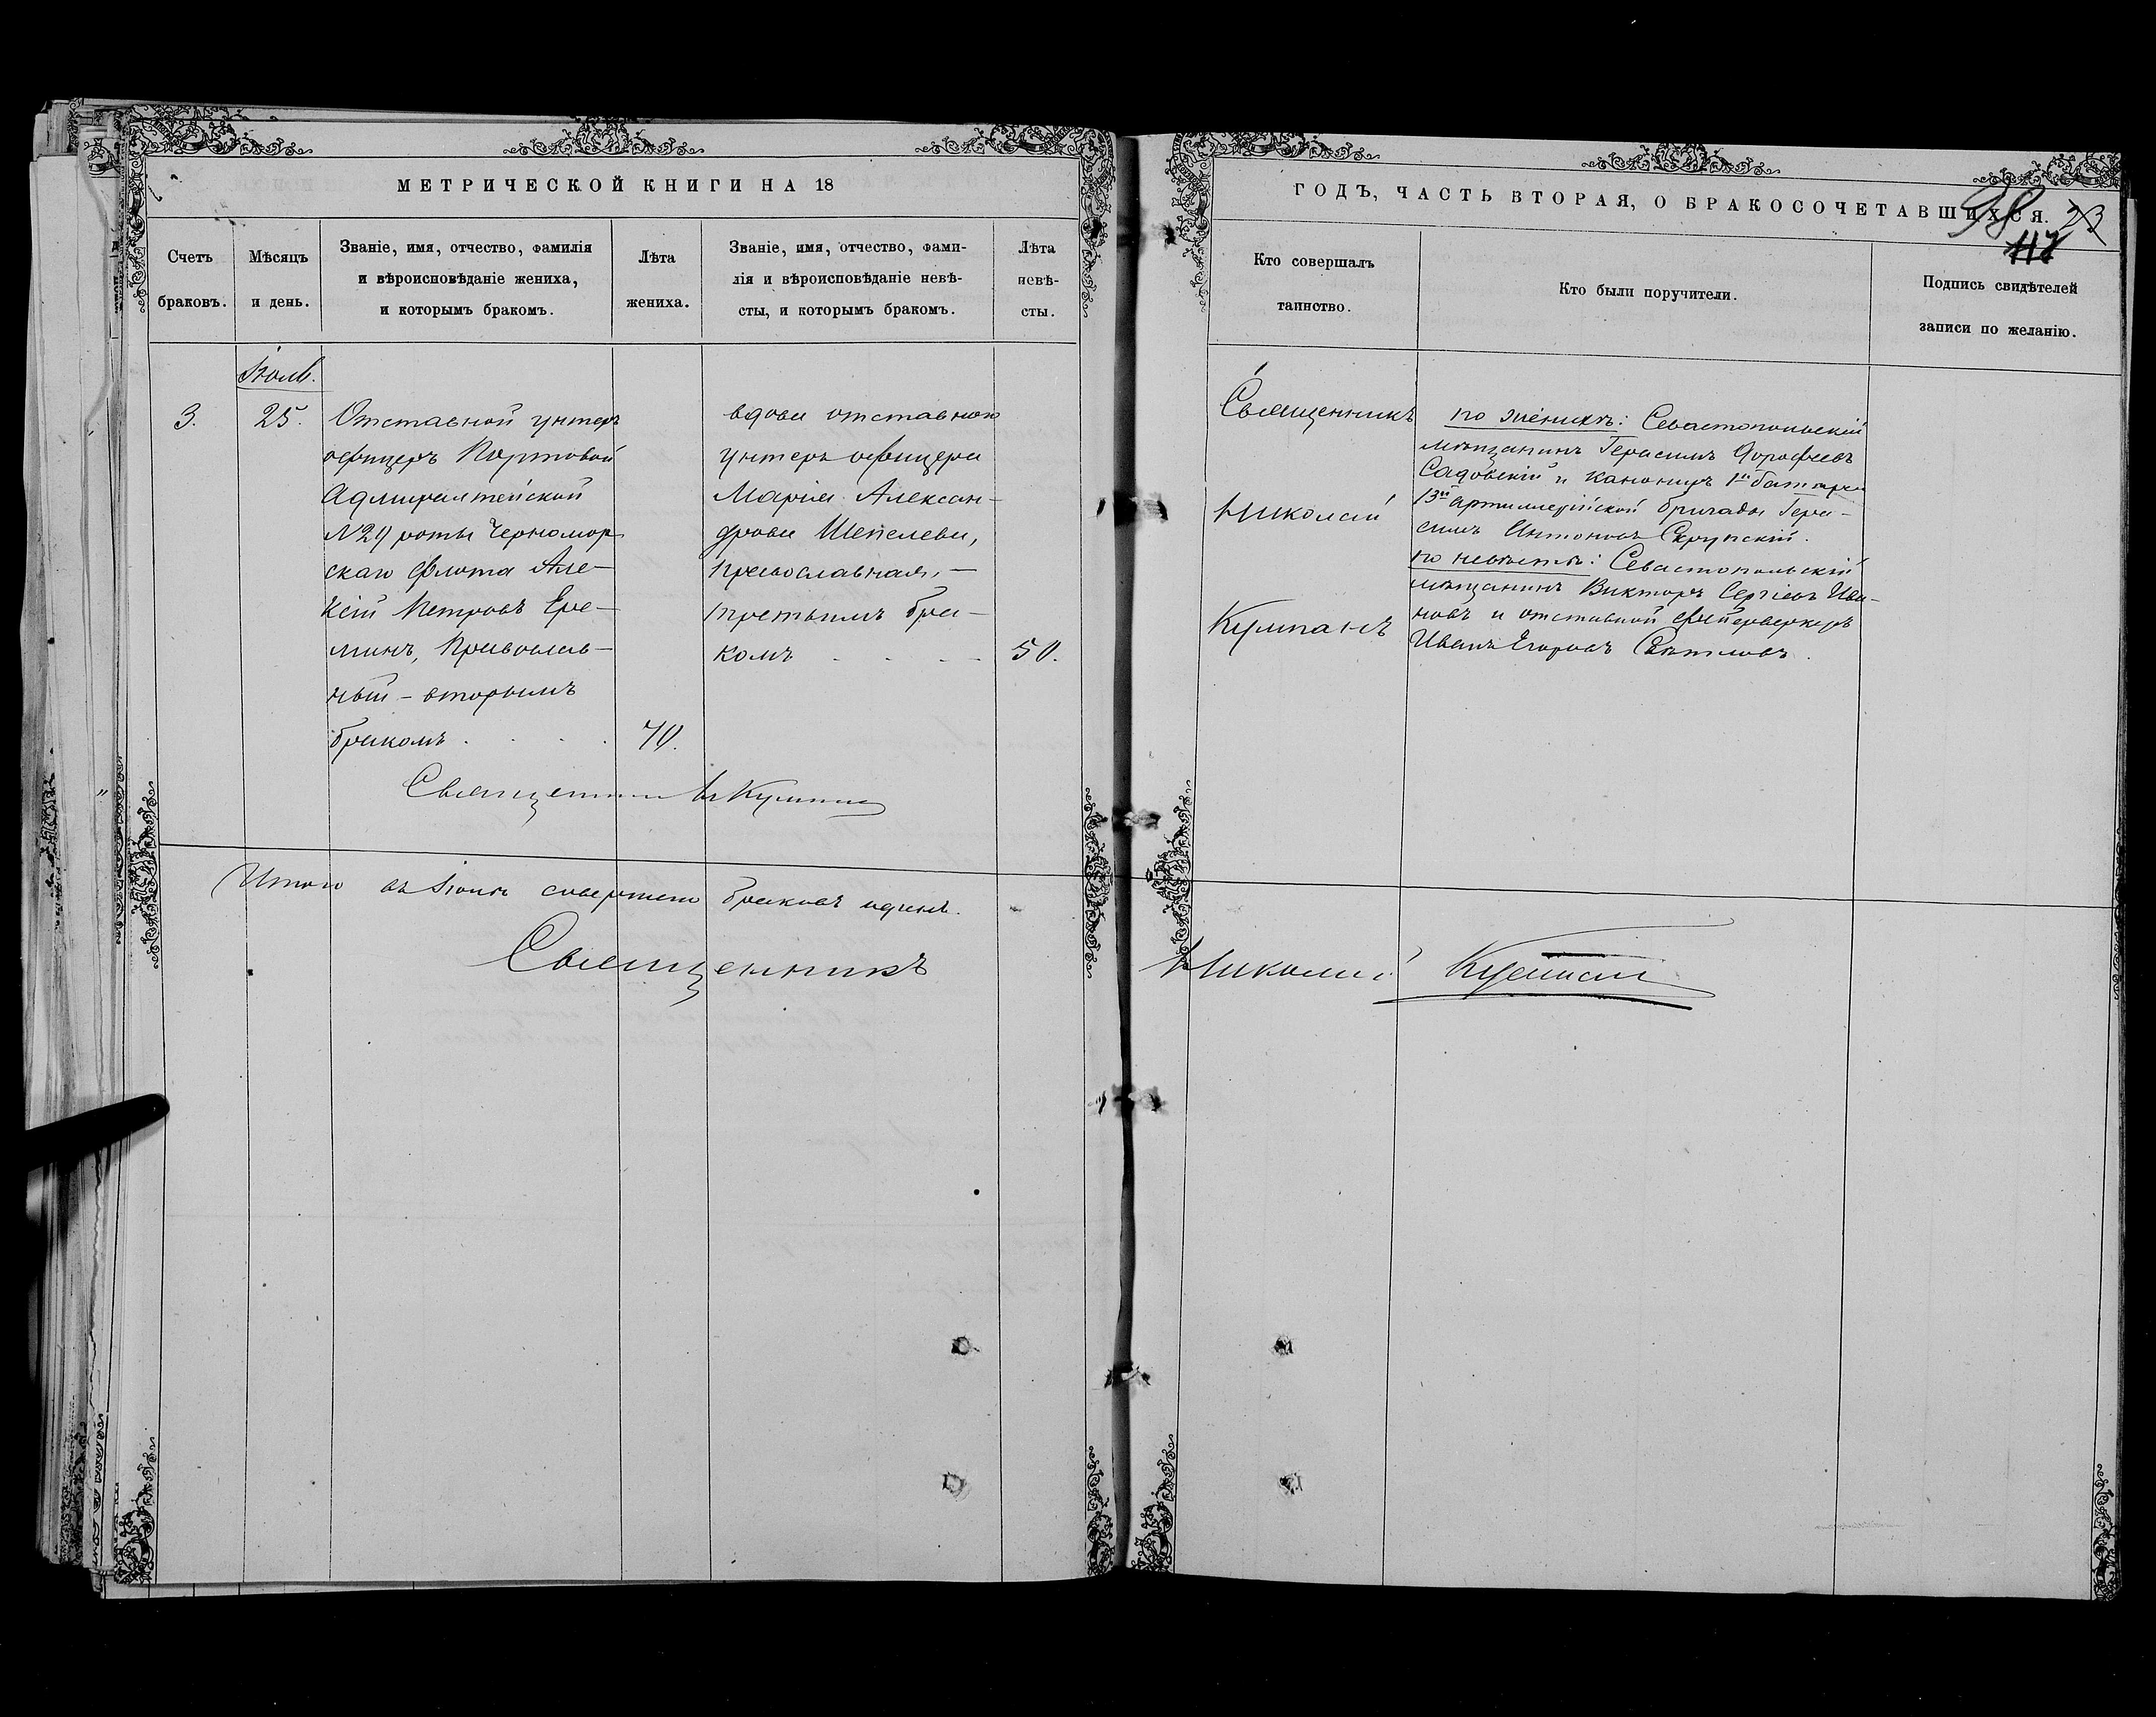 МЕТРИЧЕСКОЙ КНИГИ НА 18
ГОДЪ, ЧАСТЬ ВТОРАЯ, О БРАКОСОЧЕТАВШИХСЯ.
98 23
117
Счетъ
браковъ.
Мѣсяцъ
и день.
Званіе, имя, отчество, фамилія
и вѣроисповѣданіе жениха,
и которымъ бракомъ.
Лѣта
жениха.
Званіе, имя, отчество, фами-
лія и вѣроисповѣданіе невѣ-
сты, и которымъ бракомъ.
Лѣта
невѣ-
сты.
Кто совершалъ
таинство.
Кто были поручители.
Подпись свидѣтелей
записи по желанію.
3.
Іюль.
25.
Отставной унтеръ
офицеръ Портовой
Адмиралтейской
№29 роты Черномор
скаго флота Але-
ксій Петровъ Ере-
минъ, Православ-
ный - вторымъ
бракомъ . . . .
70.
вдова отставного
унтеръ офицера
Марія Алексан-
дрова Шепелева,
православная, -
третьимъ бра-
комъ . . . -
50.
Священникъ
Николай
Кулпанъ
по женихѣ: Севастопольскій
мѣщанинъ Герасимъ Дорофеевъ
Садовскій и канониръ 1й батареи
13й артиллерійской бригады Гера-
симъ Антоновъ Скрупскій.
по невѣстѣ: Севастопольскій
мѣщанинъ Викторъ Сергіевъ Ива-
новъ и отставной фейерверкеръ
Иванъ Егоровъ Свѣтловъ.
Священникъ Н Кулпан
Итого въ Іюлѣ совершено браковъ одинъ.
Священникъ Николай Кулпан